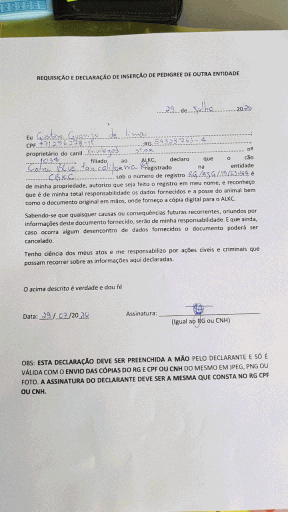 REQUISIÇÃO E DECLARAÇÃO DE INSERÇÃO DE PEDIGREE DE OUTRA ENTIDADE
29 de Julho 2020
Eu de Lima
CPF RG
proprietário do canil nº
1038 filiado ao ALKC, declaro que o cão
registrado na entidade
CBKC sob o número de registro é
de minha propriedade, autorizo que seja feito o registro em meu nome, e reconheço
que é de minha total responsabilidade os dados fornecidos e a posse do animal bem
como o documento original em mãos, onde forneço a cópia digital para o ALKC.
Sabendo-se que quaisquer causas ou consequências futuras recorrentes, oriundos por
informações deste documento fornecido, serão de minha responsabilidade. E que ainda,
caso ocorra algum desencontro de dados fornecidos o documento poderá ser
cancelado.
Tenho ciência dos meus atos e me responsabilizo por ações cíveis e criminais que
possam recorrer sobre as informações aqui declaradas.
O acima descrito é verdade e dou fé
Data: 29/07/2020 Assinatura:
(Igual ao RG ou CNH)
OBS: ESTA DECLARAÇÃO DEVE SER PREENCHIDA A MÃO PELO DECLARANTE E SÓ É
VÁLIDA COM O ENVIO DAS CÓPIAS DO RG E CPF OU CNH DO MESMO EM JPEG, PNG OU
FOTO. A ASSINATURA DO DECLARANTE DEVE SER A MESMA QUE CONSTA NO RG CPF
OU CNH.